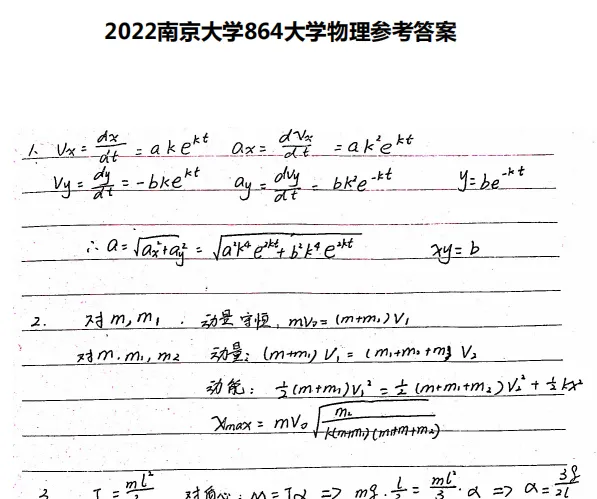 2022南京大学864大学物理参考答案
1. Vx = dx/dt = ake^{kt}  ax = dVx/dt = ak²e^{kt}
Vy = dy/dt = -bke^{kt}  ay = dVy/dt = bk²e^{-kt}  y = be^{-kt}
∴ a = √(ax²+ay²) = √(a²k⁴e^{2kt} + b²k⁴e^{2kt})  xy = b
2. 对m, m₁. 动量守恒, mV₀ = (m+m₁)V₁
对m. m₁, m₂ 动量: (m+m₁)V₁ = (m₁+m₂+m)V₂
动能: ½(m+m₁)V₁² = ½(m+m₁+m₂)V₂² + ½kx²
Xmax = mV₀√(m₂/(k(m+m₁)(m+m₁+m₂)))
3. I = ml²/3 M = Iα => mg·l/2 = ml²/3·α => α = 3g/2l